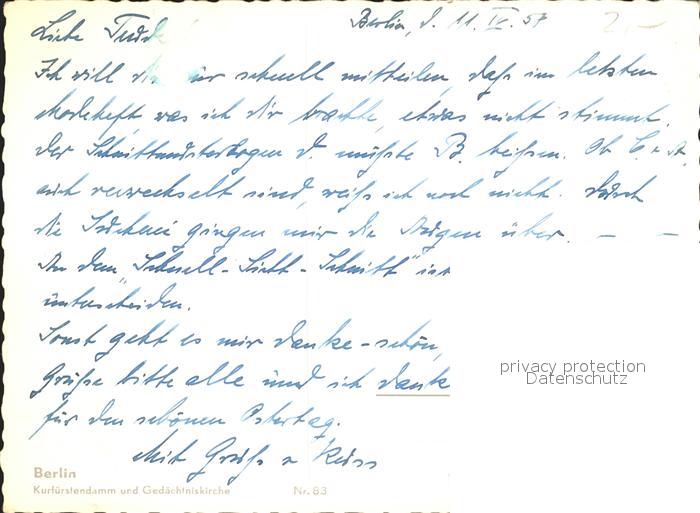 Berlin, d. 11. IV. 57
2,-
Liebe
Ich will dir nur schnell mitteilen, daß im letzten
Modeheft was ich dir brachte, etwas nicht stimmt.
Der Schnittmusterbogen D. müßte B. heißen. Ob C. u. A.
auch verwechselt sind, weiß ich noch nicht. Durch
die Sucherei gingen mir die Augen über. — —
An dem "Schnell-Sicht-Schnitt" ist
unterscheiden.
Sonst geht es mir danke-schön,
Grüße bitte alle und ich danke
für den schönen Ostertag.
Mit Gruß u Kuss
privacy protection
Datenschutz
Berlin
Kurfürstendamm und Gedächtniskirche Nr. 83